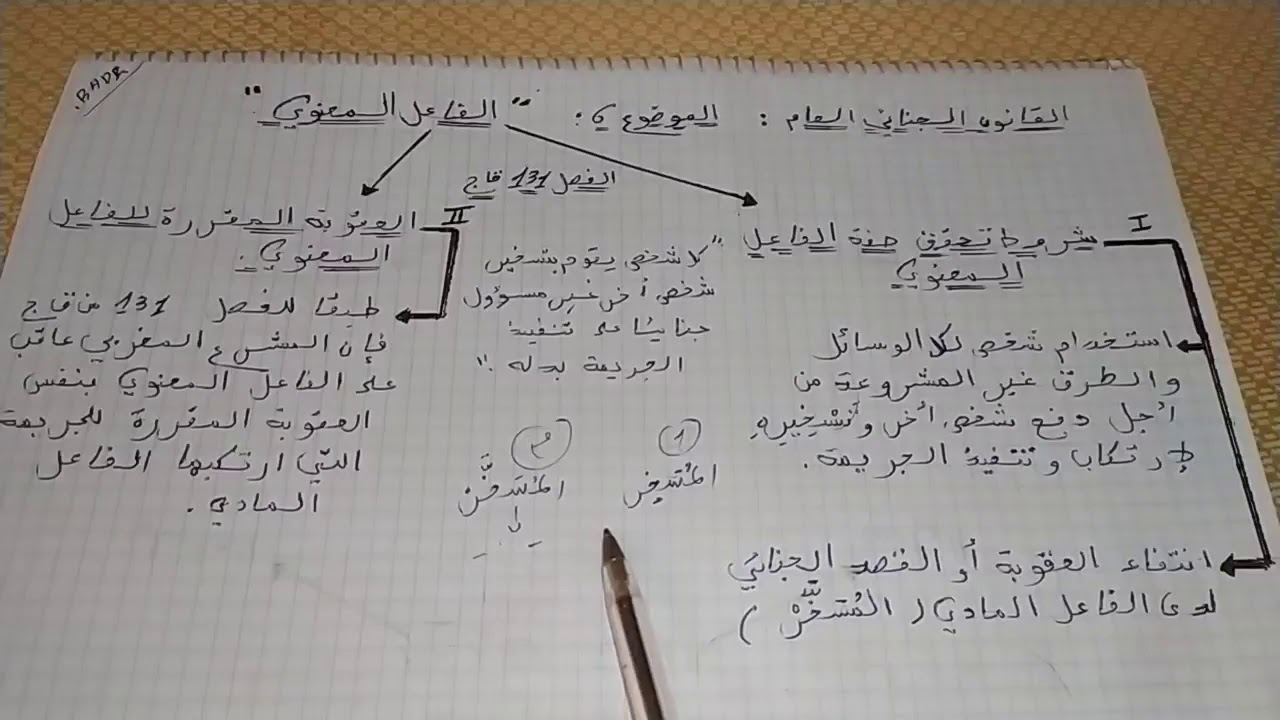 BADR.
القانون الجنائي العام : الموضوع 6 : "الفاعل المعنوي"
الفصل 131 ق ا ج
I شروط تحقق صفة الفاعل
المعنوي
استخدام شخص لكل الوسائل
والطرق غير المشروعة من
أجل دفع شخص أخر وتسخيره
لإرتكاب وتنفيذ الجريمة.
انتفاء العقوبة أو القصد الجنائي
لدى الفاعل المادي (المُسَخَّرْ)
"كل شخص يقوم بتسخير
شخص أخر غير مسؤول
جنائيا على تنفيذ
الجريمة بدله."
1 المُسَخِر
2 المُسَخَّر
II العقوبة المقررة للفاعل
المعنوي.
طبقا للفصل 131 من ق ا ج
فإن المشرع المغربي عاقب
على الفاعل المعنوي بنفس
العقوبة المقررة للجريمة
التي ارتكبها الفاعل
المادي.